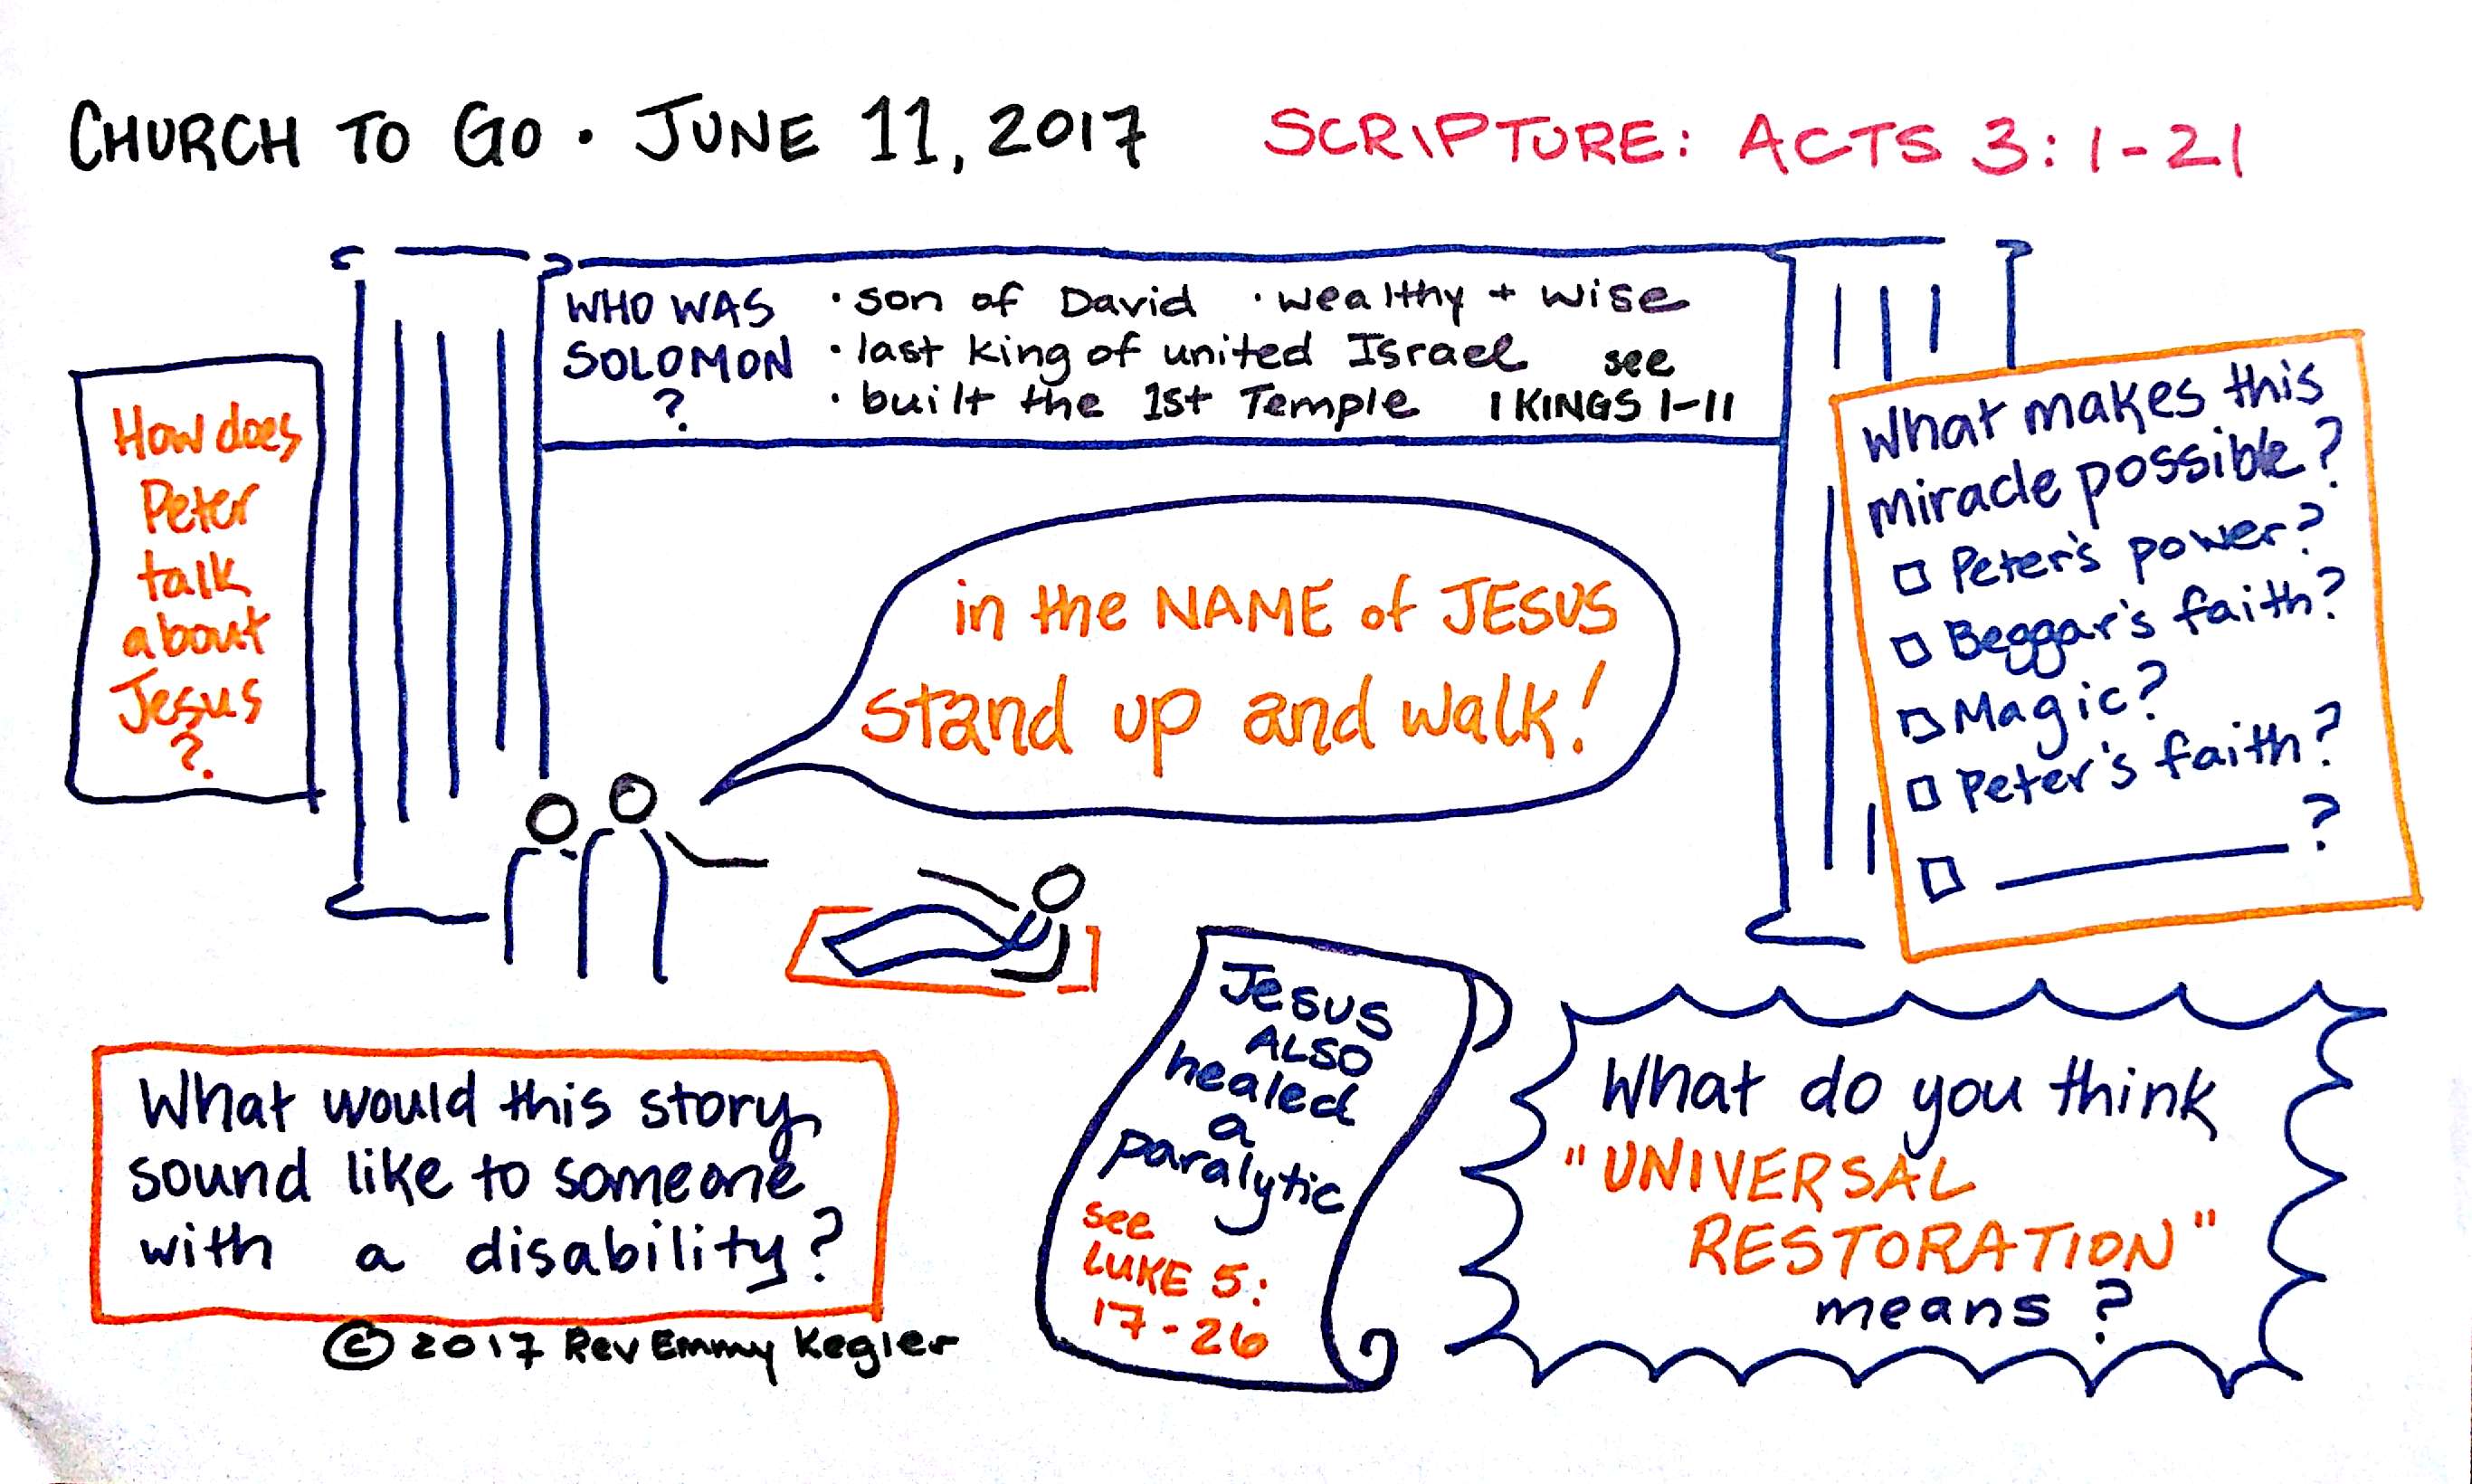 CHURCH TO GO • JUNE 11, 2017 SCRIPTURE: ACTS 3:1-21
WHO WAS
SOLOMON
?
• son of David • wealthy + wise
• last king of united Israel see
• built the 1st Temple 1 KINGS 1-11
How does
Peter
talk
about
Jesus
?
in the NAME of JESUS
stand up and walk!
What makes this
miracle possible?
□ Peter's power?
□ Beggar's faith?
□ Magic?
□ Peter's faith?
□ ________?
What would this story
sound like to someone
with a disability?
© 2017 Rev Emmy Kegler
Jesus
ALSO
healed
a
paralytic
see
LUKE 5:
17-26
What do you think
"UNIVERSAL
RESTORATION"
means?